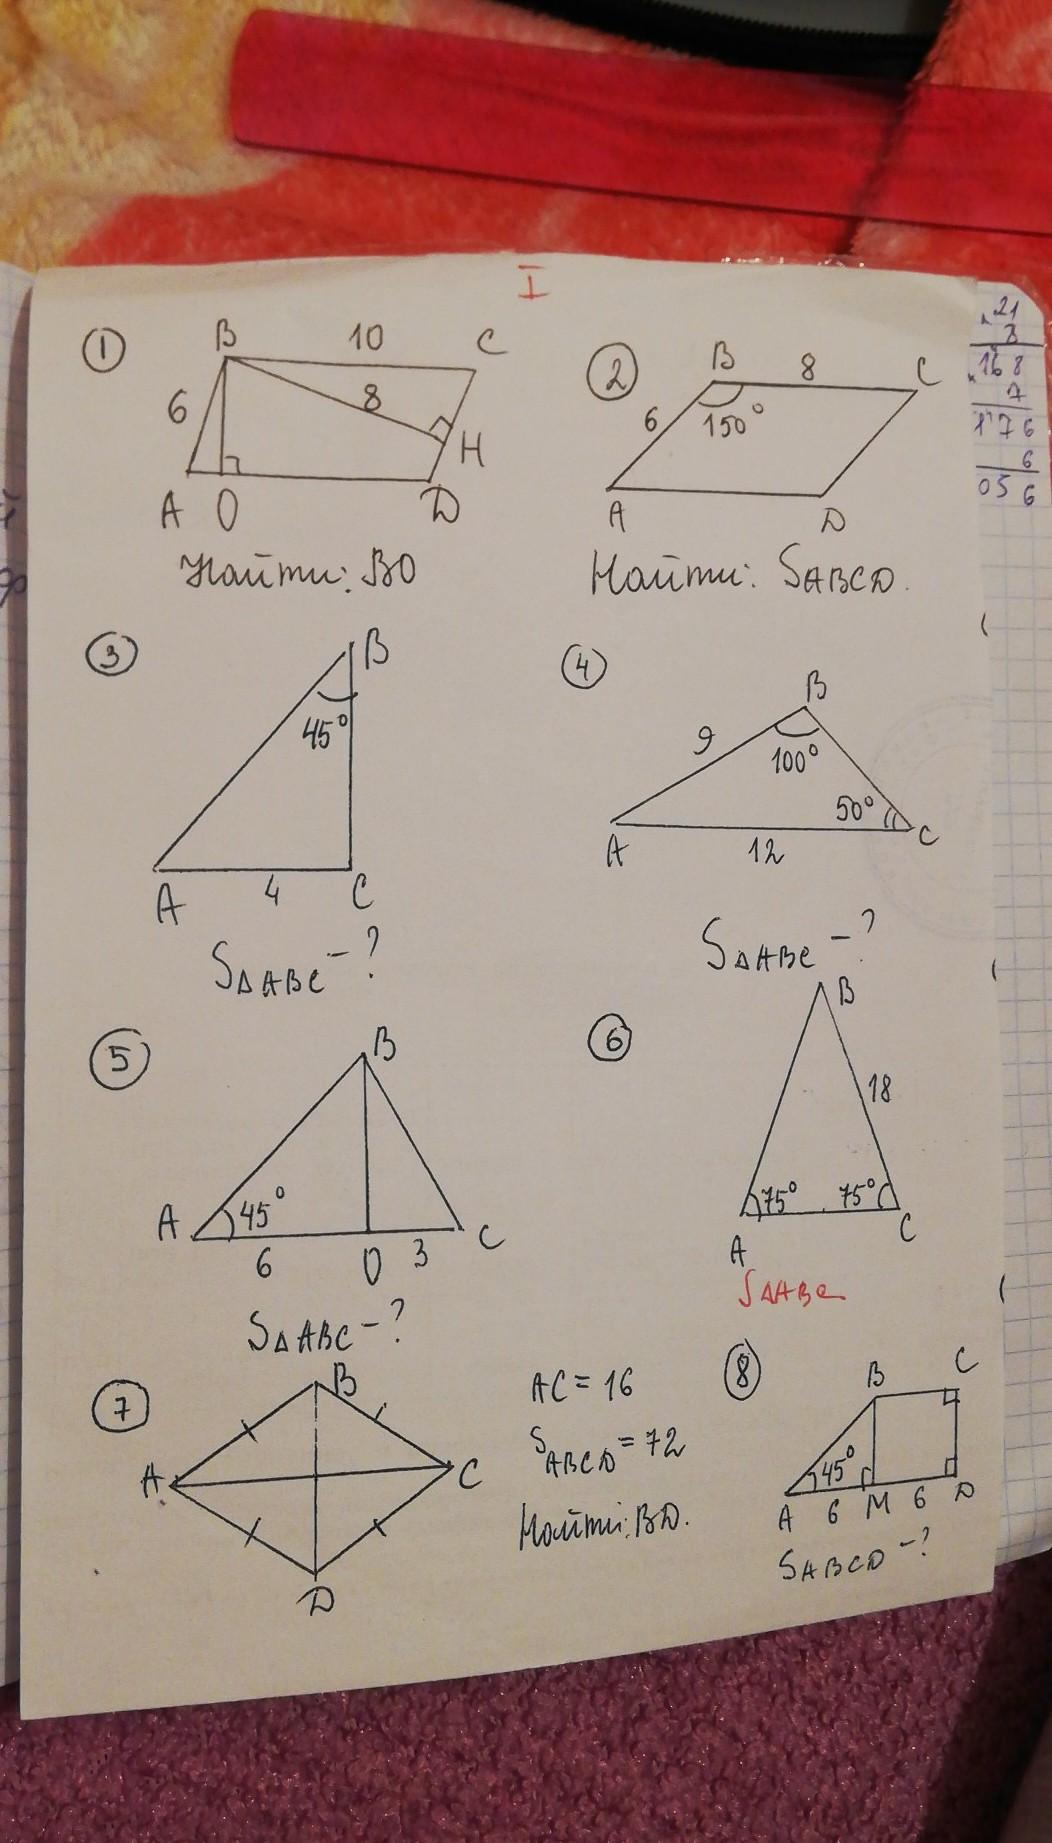 I
1
B
10
C
6
8
H
A
O
D
Найти: BO
2
B
8
C
6
150°
A
D
Найти: SABCD.
21
8
168
7
1176
6
056
3
B
45°
A
4
C
S△ABC - ?
4
B
9
100°
50°
A
12
C
S△ABC - ?
5
B
A
45°
6
O
3
C
S△ABC - ?
6
B
18
75°
75°
A
C
S△ABC
7
B
A
C
D
AC = 16
SABCD = 72
Найти: BD.
8
B
C
45°
A
6
M
6
D
SABCD - ?